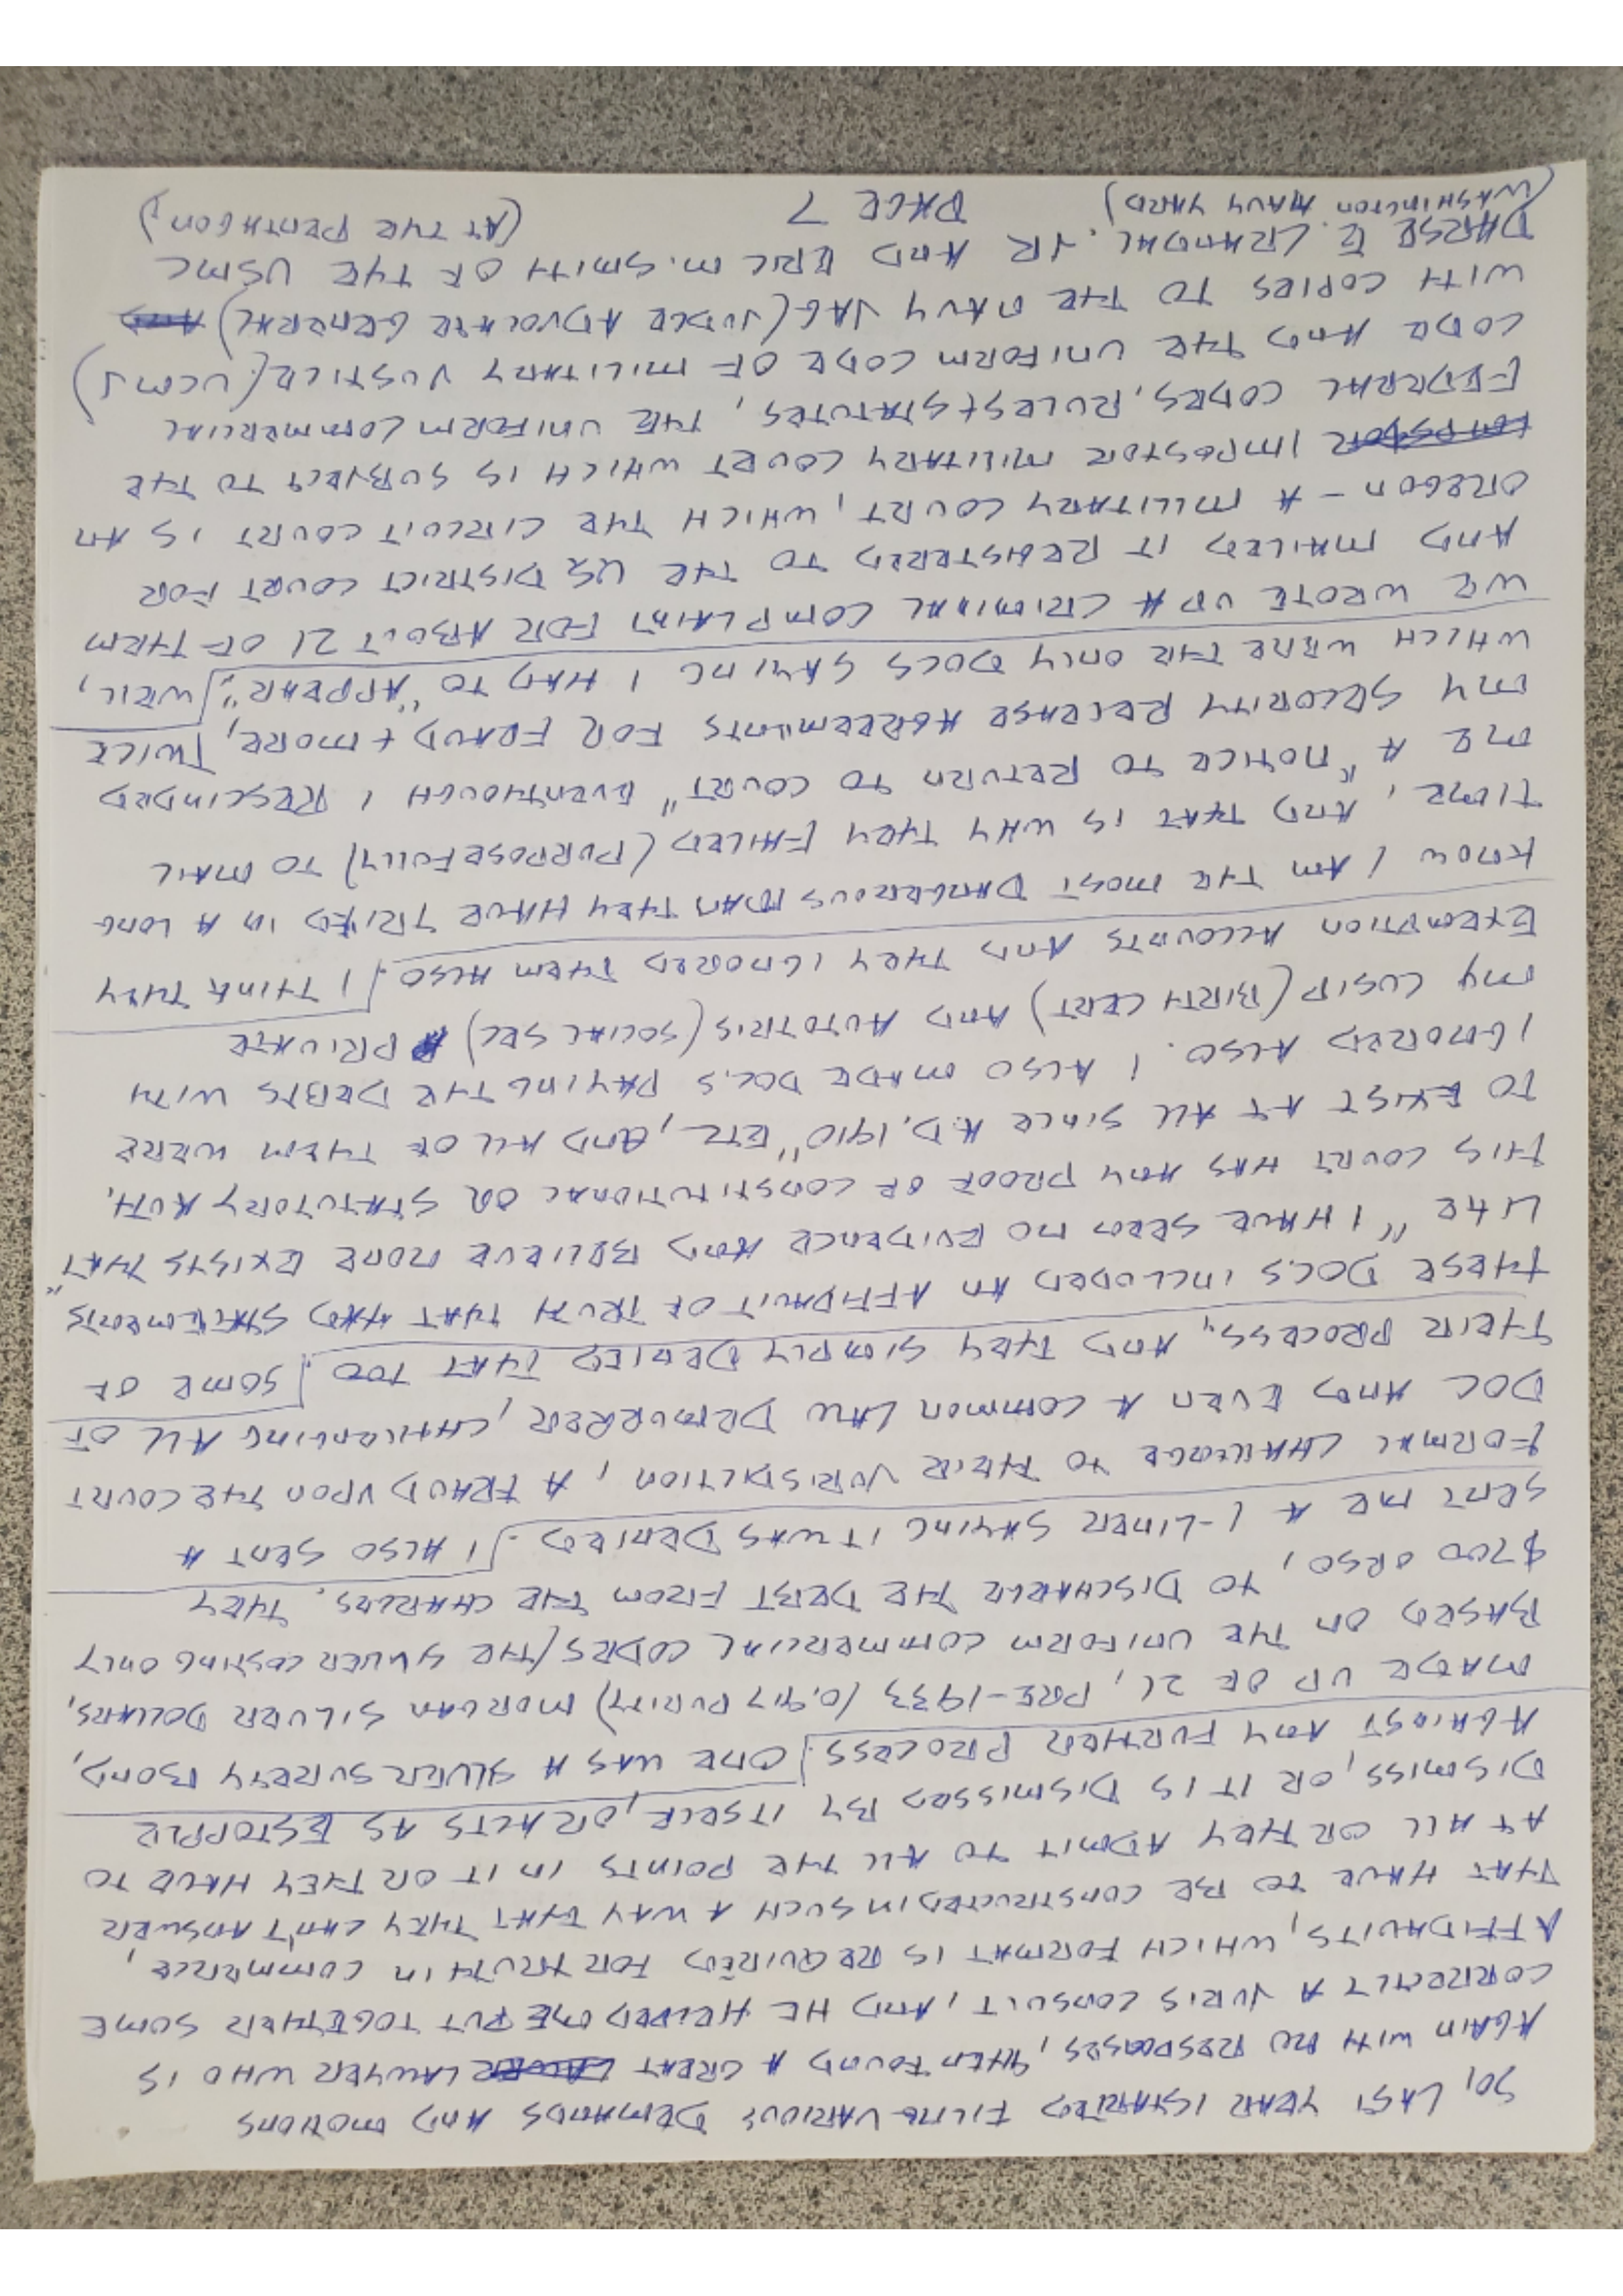 SO, LAST YEAR I STARTED FILING VARIOUS DEMANDS AND MOTIONS
AGAIN WITH NO RESPONSES, THEN FOUND A GREAT LAWYER WHO IS
CORRECTLY A JURIS CONSULT, AND HE HELPED ME PUT TOGETHER SOME
AFFIDAVITS, WHICH FORMAT IS REQUIRED FOR TRUTH IN COMMERCE,
THAT HAVE TO BE CONSTRUCTED IN SUCH A WAY THAT THEY CAN'T ANSWER
AT ALL OR THEY ADMIT TO ALL THE POINTS IN IT OR THEY HAVE TO
DISMISS, OR IT IS DISMISSED BY ITSELF, OR ACTS AS ESTOPPLE
AGAINST ANY FURTHER PROCESS. ONE WAS A SILVER SURETY BOND,
MADE UP OF 21, PRE-1933 (0.917 PURITY) MORGAN SILVER DOLLARS,
BASED ON THE UNIFORM COMMERCIAL CODES/THE SILVER COSTING ONLY
$700 OR SO, TO DISCHARGE THE DEBT FROM THE CHARGES. THEY
SENT ME A 1-LINER SAYING IT WAS DENIED. I ALSO SENT A
FORMAL CHALLENGE TO THEIR JURISDICTION, A FRAUD UPON THE COURT
DOC AND EVEN A COMMON LAW DEMURRER, CHALLENGING ALL OF
THEIR PROCESS, AND THEY SIMPLY DENIED THAT TOO. SOME OF
THESE DOCS INCLUDED AN AFFIDAVIT OF TRUTH THAT HAD STATEMENTS
LIKE "I HAVE SEEN NO EVIDENCE AND BELIEVE NONE EXISTS THAT"
THIS COURT HAS ANY PROOF OF CONSTITUTIONAL OR STATUTORY AUTH.
TO EXIST AT ALL SINCE A.D. 1910", ETC, AND ALL OF THEM WERE
IGNORED ALSO. I ALSO MADE DOCS PAYING THE DEBTS WITH
MY CUSIP (BIRTH CERT) AND AUTOTRIS (SOCIAL SEC) PRIVATE
EXEMPTION ACCOUNTS AND THEY IGNORED THEM ALSO. I THINK THEY
KNOW I AM THE MOST DANGEROUS MAN THEY HAVE TRIED IN A LONG
TIME, AND THAT IS WHY THEY FAILED (PURPOSEFULLY) TO MAIL
ME A "NOTICE TO RETURN TO COURT" EVENTHOUGH I RESCINDED
MY SECURITY RELEASE AGREEMENTS FOR FRAUD & MORE, TWICE
WHICH WERE THE ONLY DOCS SAYING I HAD TO "APPEAR". WELL,
WE WROTE UP A CRIMINAL COMPLAINT FOR ABOUT 21 OF THEM
AND MAILED IT REGISTERED TO THE US DISTRICT COURT FOR
OREGON - A MILITARY COURT, WHICH THE CIRCUIT COURT IS AN
IMPOSTOR MILITARY COURT WHICH IS SUBJECT TO THE
FEDERAL CODES, RULES & STATUTES, THE UNIFORM COMMERCIAL
CODE AND THE UNIFORM CODE OF MILITARY JUSTICE (UCMJ)
WITH COPIES TO THE NAVY JAG (JUDGE ADVOCATE GENERAL)
DARSE E. CRANDAL JR AND ERIC M. SMITH OF THE USMC
(WASHINGTON NAVY YARD) PAGE 7 (AT THE PENTAGON)